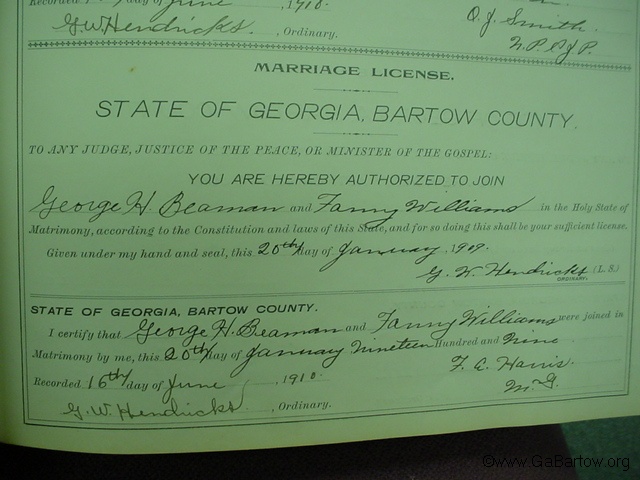 Recorded day of June , 1910.
G.W. Hendricks. , Ordinary.
O. J. Smith.
N. P. & J. P.
MARRIAGE LICENSE.
STATE OF GEORGIA, BARTOW COUNTY.
TO ANY JUDGE, JUSTICE OF THE PEACE, OR MINISTER OF THE GOSPEL:
YOU ARE HEREBY AUTHORIZED TO JOIN
George H. Beaman and Fanny Williams in the Holy State of
Matrimony, according to the Constitution and laws of this State, and for so doing this shall be your sufficient license.
Given under my hand and seal, this 20th day of January , 1909.
G. W. Hendricks (L. S.)
ORDINARY.
STATE OF GEORGIA, BARTOW COUNTY.
I certify that George H. Beaman and Fanny Williams were joined in
Matrimony by me, this 20th day of January Nineteen Hundred and Nine
Recorded 16th day of June , 1910.
F. A. Harris.
M. G.
G. W. Hendricks , Ordinary.
©www.GaBartow.org